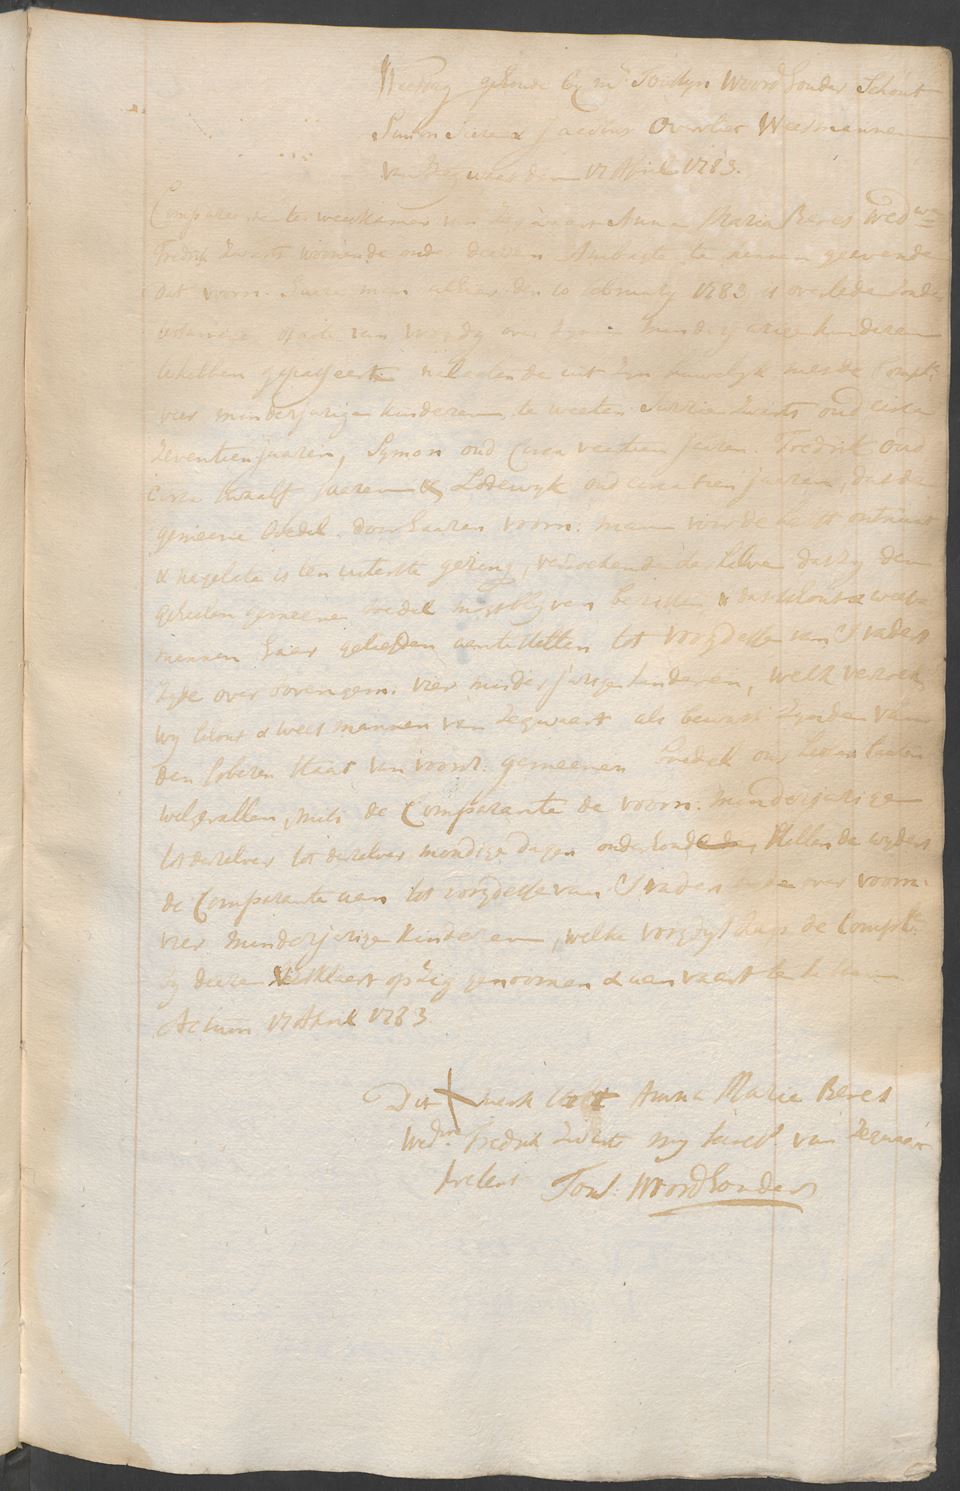 Weesdag gehoude by mr. Joostyn Woordhouder Schout
Simon & Jacobus Overvliet Weesmannen
van Zegwaart den 17 April 1783.
Compareerde ter weeskamer van Zegwaart Anna Maria Beres Wedwe
Fredrik Zwarts woonende onder deesen Ambagte te kennen geevende
dat voorn. haare man alhier den 10 february 1783 is overleden sonder
acte van voogdy over zyne minderjarige kinderen
te hebben gepasseert nalatende uit zyn huwelyk met de Compte.
vier minderjarige kinderen te weeten Zwarts oud circa
zeventien jaaren, Symon oud Circa veertien Jaren. Fredrik oud
circa twaalf jaeren & Lodewyk oud circa tien jaaren, dat de
gemeene boedel door haaren voorn: man
& nagelate is ten uiterste gering, versoekende derhalve dat zy den
geheelen gemeene boedel mogt blyven besitten & dat schout & wees
mannen haar geliefden aantestellen tot voogdesse van 's vaders
zyde over bovengem: vier minderjarige kinderen, welk versoek
wy schout & weesmannen van Zegwaart als bewust zynde van
den soberen staat van voorsz. gemeenen boedel ons laten
welgevallen, mits de Comparante de voorn. minderjarige
tot derzelver tot derzelver mondige dagen onderhoude, stellende wyders
de Comparante aan tot voogdesse van 's vaders zyde over voorn.
vier minderjarige kinderen, welke voogdyschap de Compte.
by deezen verklaert op zig genoomen & aanvaart te hebben
Actum 17 April 1783
Dit X merk stelt Anna Maria Beres
Wedwe Fredrik Zwarts my van Zegwaart
present Joost Woordhouder